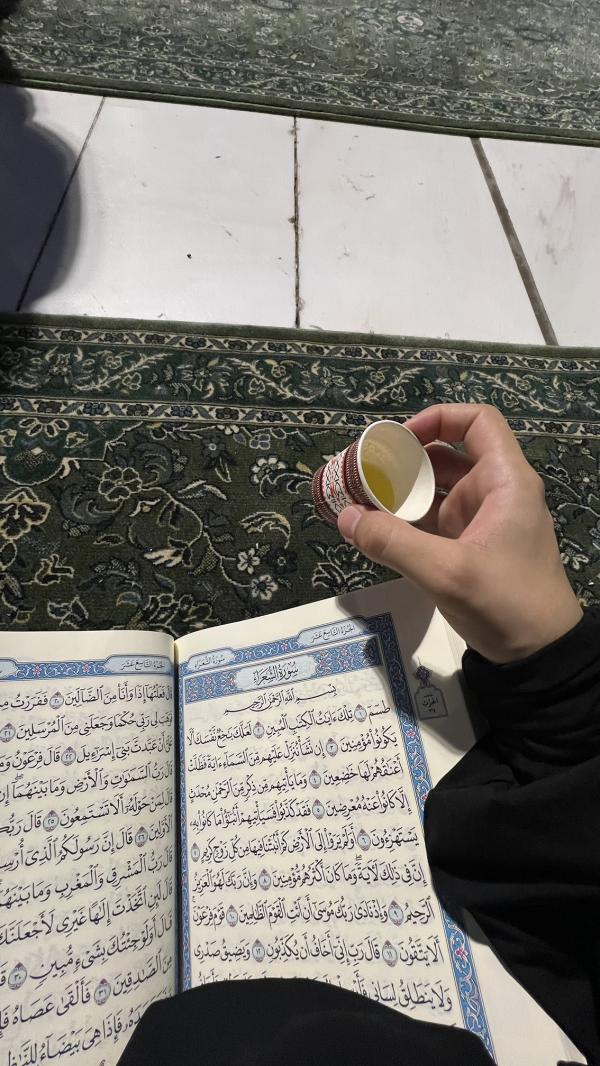 الجُزْءُ التَّاسِعَ عَشَرَ
سُورَةُ الشُّعَرَاءِ
سُورَةُ الشُّعَرَاءِ
بِسْمِ ٱللَّهِ ٱلرَّحْمَٰنِ ٱلرَّحِيمِ
طسٓمٓ ١ تِلْكَ ءَايَٰتُ ٱلْكِتَٰبِ ٱلْمُبِينِ ٢ لَعَلَّكَ بَٰخِعٌ نَّفْسَكَ أَلَّا
يَكُونُوا۟ مُؤْمِنِينَ ٣ إِن نَّشَأْ نُنَزِّلْ عَلَيْهِم مِّنَ ٱلسَّمَآءِ ءَايَةً فَظَلَّتْ
أَعْنَٰقُهُمْ لَهَا خَٰضِعِينَ ٤ وَمَا يَأْتِيهِم مِّن ذِكْرٍ مِّنَ ٱلرَّحْمَٰنِ مُحْدَثٍ
إِلَّا كَانُوا۟ عَنْهُ مُعْرِضِينَ ٥ فَقَدْ كَذَّبُوا۟ فَسَيَأْتِيهِمْ أَنۢبَٰٓؤُا۟ مَا كَانُوا۟ بِهِۦ
يَسْتَهْزِءُونَ ٦ أَوَلَمْ يَرَوْا۟ إِلَى ٱلْأَرْضِ كَمْ أَنۢبَتْنَا فِيهَا مِن كُلِّ زَوْجٍ كَرِيمٍ ٧
إِنَّ فِى ذَٰلِكَ لَءَايَةً ۖ وَمَا كَانَ أَكْثَرُهُم مُّؤْمِنِينَ ٨ وَإِنَّ رَبَّكَ لَهُوَ ٱلْعَزِيزُ
ٱلرَّحِيمُ ٩ وَإِذْ نَادَىٰ رَبُّكَ مُوسَىٰٓ أَنِ ٱئْتِ ٱلْقَوْمَ ٱلظَّٰلِمِينَ ١٠ قَوْمَ فِرْعَوْنَ ۚ
أَلَا يَتَّقُونَ ١١ قَالَ رَبِّ إِنِّىٓ أَخَافُ أَن يُكَذِّبُونِ ١٢ وَيَضِيقُ صَدْرِى
وَلَا يَنطَلِقُ لِسَانِى
الحِزْبُ
٣٧
الجُزْءُ التَّاسِعَ عَشَرَ
فَعَلْتُهَآ إِذًا وَأَنَا۠ مِنَ ٱلضَّآلِّينَ ٢٠ فَفَرَرْتُ
رَبِّى حُكْمًا وَجَعَلَنِى مِنَ ٱلْمُرْسَلِينَ ٢١
أَنْ عَبَّدتَّ بَنِىٓ إِسْرَٰٓءِيلَ ٢٢ قَالَ فِرْعَوْنُ
رَبُّ ٱلسَّمَٰوَٰتِ وَٱلْأَرْضِ وَمَا بَيْنَهُمَآ ۖ
لِمَنْ حَوْلَهُۥٓ أَلَا تَسْتَمِعُونَ ٢٥ قَالَ
ٱلْأَوَّلِينَ ٢٦ قَالَ إِنَّ رَسُولَكُمُ ٱلَّذِىٓ
قَالَ رَبُّ ٱلْمَشْرِقِ وَٱلْمَغْرِبِ وَمَا
قَالَ لَئِنِ ٱتَّخَذْتَ إِلَٰهًا غَيْرِى لَأَجْعَلَنَّكَ
قَالَ أَوَلَوْ جِئْتُكَ بِشَىْءٍ مُّبِينٍ ٣٠
ٱلصَّٰدِقِينَ ٣١ فَأَلْقَىٰ عَصَاهُ
فَإِذَا هِىَ بَيْضَآءُ